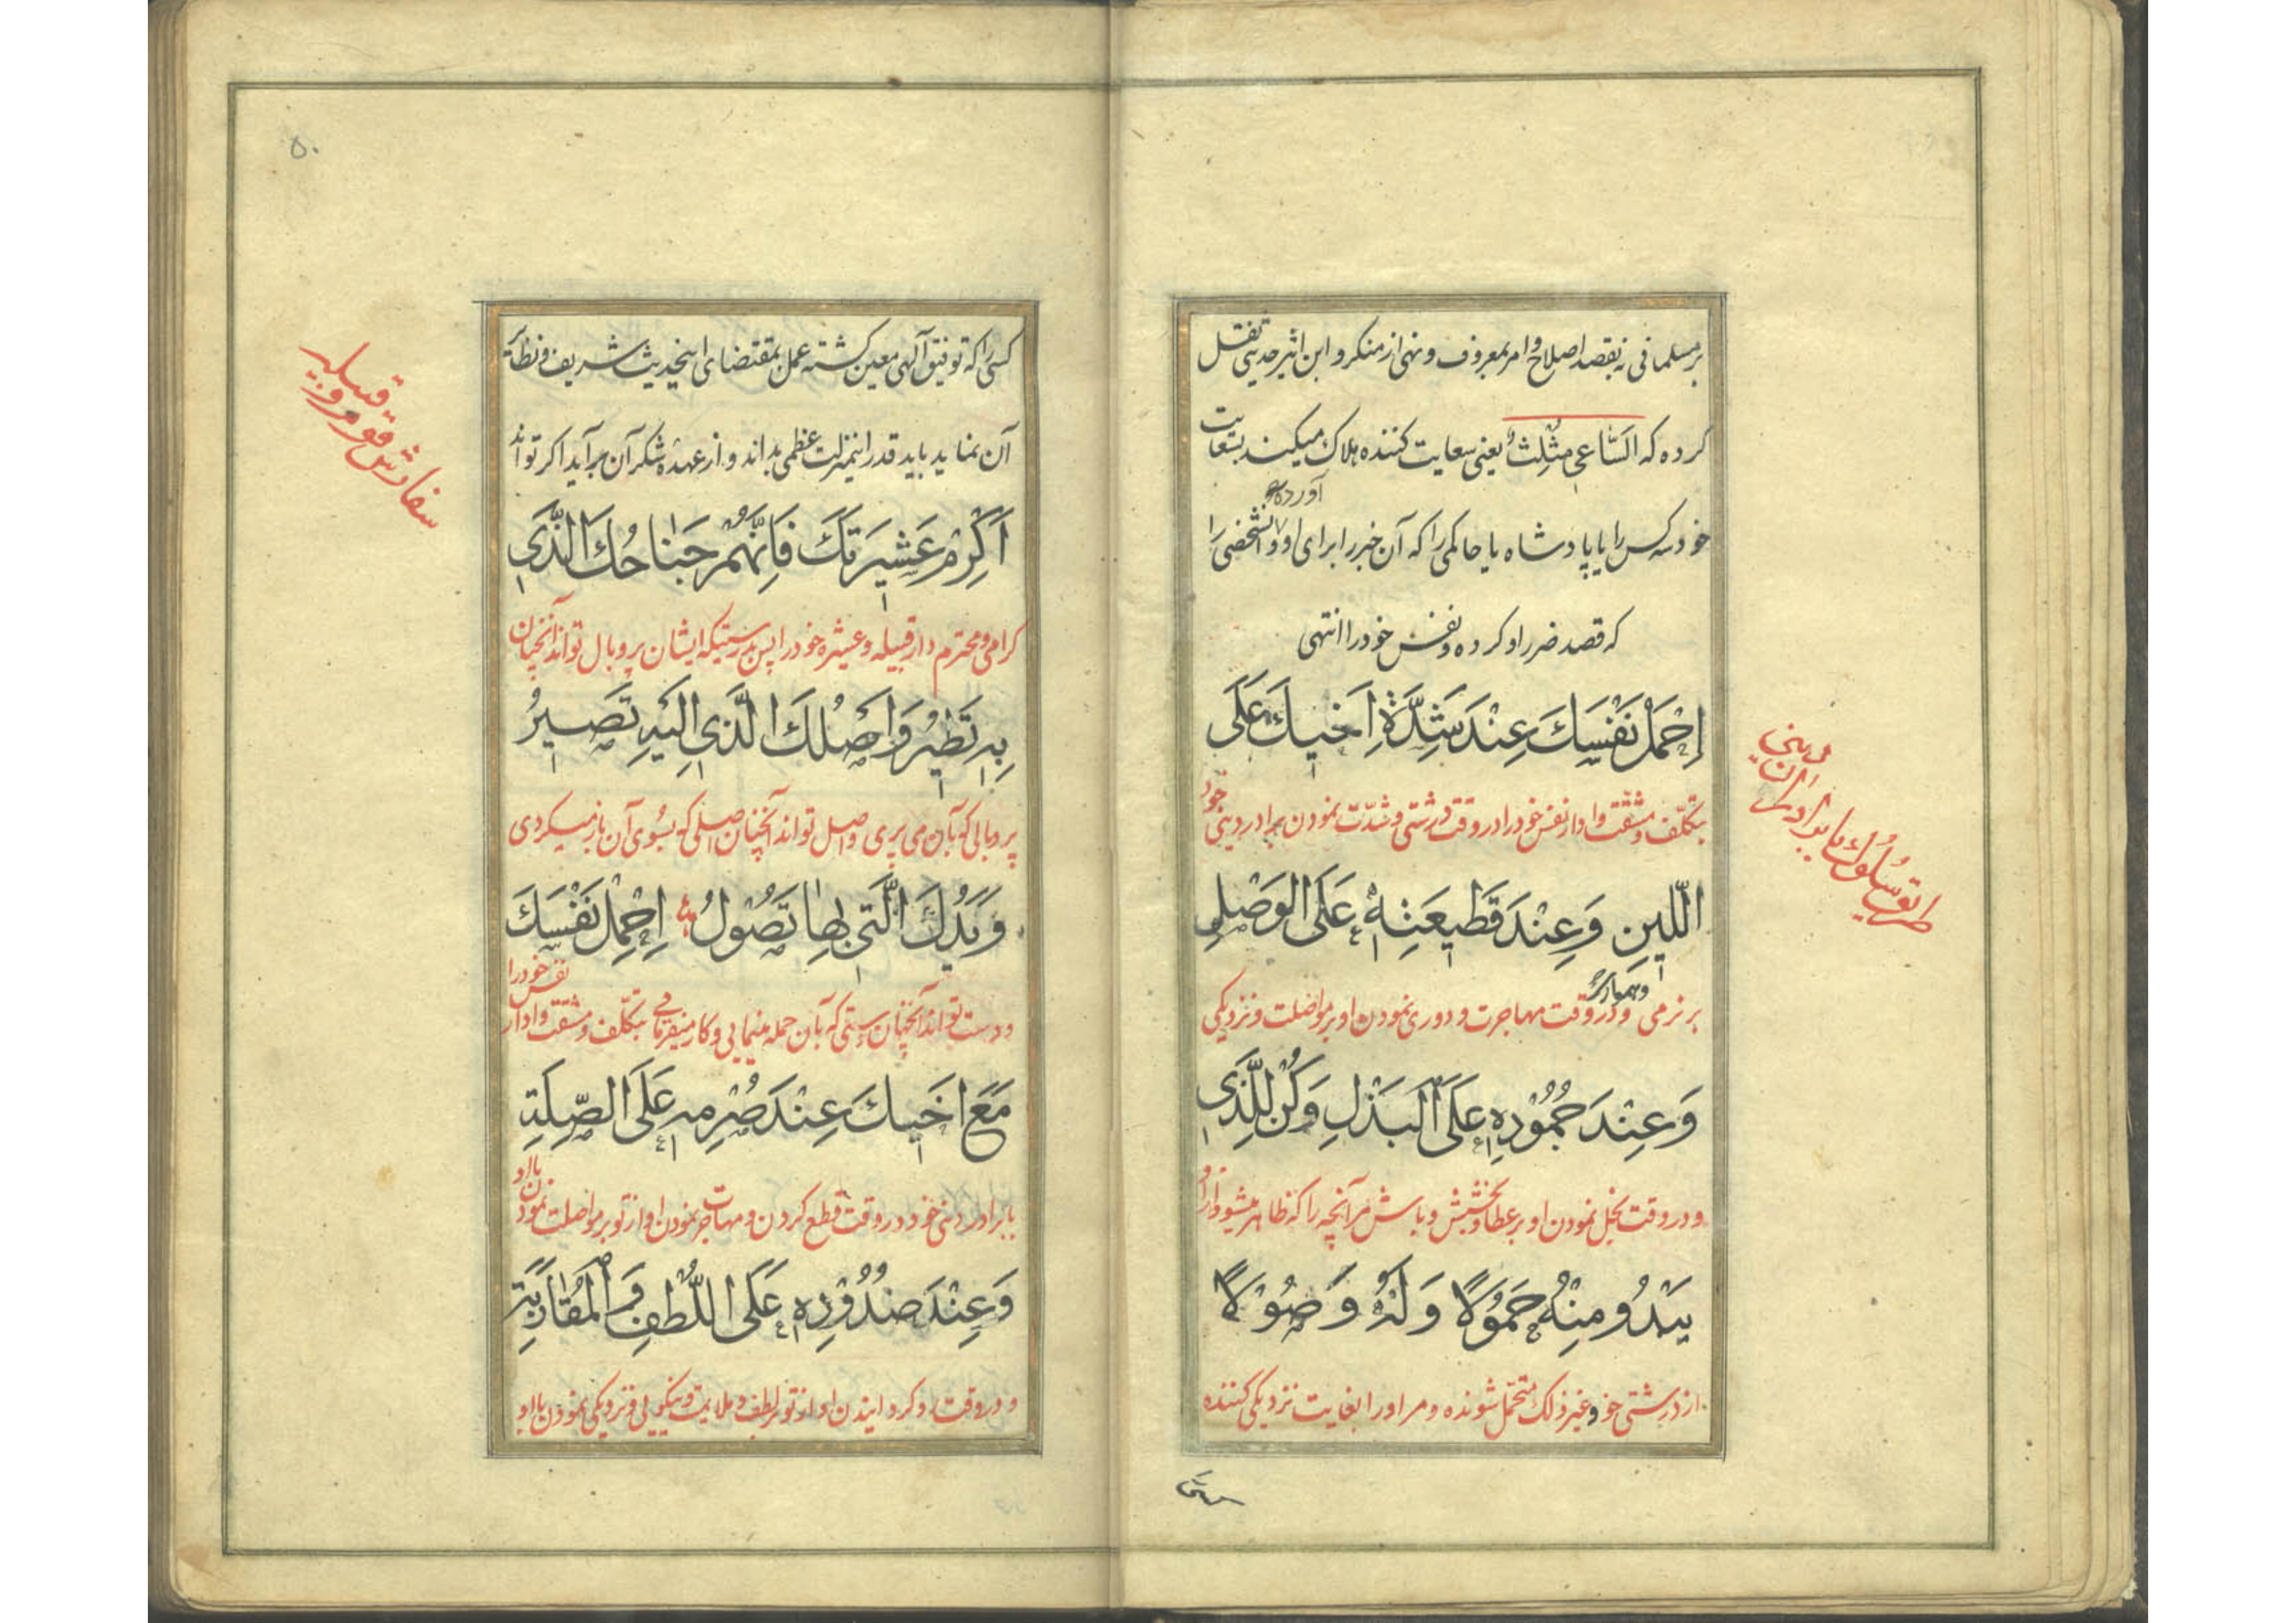 بر مسلمانی نه بقصد اصلاح و امر بمعروف و نهی از منکر و ابن اثیر حدیثی نقل
کرده که اَلسّاعی مُثَلِّثٌ یعنی سعایت کننده هلاک میکند بسعایت
آورده
خود سه کس را یا پادشاه یا حاکمی را که آن خبر را برای او و آنشخصی را
که قصد ضرر او کرده و نفس خود را انتهی
اِحْمِلْ نَفْسَكَ عِنْدَ شِدَّةِ اَخيكَ عَلَى
بتکلّف و مشقت وادار نفس خود را در وقت درشتی و شدّت نمودن برادر دینی خود
طریق سلوک با برادران دینی
اللّينِ وَعِنْدَ قَطيعَتِهِ عَلَى الوَصْلِ
و همواری
بر نرمی و در وقت مهاجرت و دوری نمودن او بر مواصلت و نزدیکی
وَعِنْدَ جُمُوْدِهِ عَلَى الْبَذْلِ وَكُنْ لِلَّذى
و در وقت بخل نمودن او بر عطا و بخشش و باش مر آنچه را که ظاهر میشود از او
يَبْدُو مِنْهُ حَمُوْلًا وَلَهُ وَصُوْلًا
از درشتی خو و غیر ذلک متحمّل شونده و مر او را بغایت نزدیکی کننده
۵۰
کسی را که توفیق آلهی معین گشته عمل بمقتضای اینحدیث شریف و نظائر
آن نماید باید قدر اینمنزلت عظمی بداند و از عهدهٔ شکر آن برآید اگر تواند
سفارش قوم و قبیله
اَكْرِمْ عَشيرَتَكَ فَاِنَّهُمْ جَناحُكَ الَّذى
گرامی و محترم دار قبیله و عشیره خود را پس بدرستیکه ایشان پر و بال تواند آنچنان
بِهِ تَطيرُ وَاَصْلُكَ الَّذى اِلَيْهِ تَصيرُ
پر و بالی که بآن می پری و اصل تواند آنچنان اصلی که بسوی آن باز میگردی
وَيَدُكَ الَّتى بِها تَصُوْلُ اِحْمِلْ نَفْسَكَ
و دست تواند آنچنان دستی که بآن حمله مینمایی و کار میفرمایی بتکلّف و مشقت وادار نفس خود را
مَعَ اَخيكَ عِنْدَ صُرْمِهِ عَلَى الصِّلَةِ
با برادر دینی خود در وقت قطع کردن و مهاجرت نمودن او از تو بر مواصلت نمودن با او
وَعِنْدَ صُدُوْدِهِ عَلَى اللُّطْفِ وَ الْمُقارَبَةِ
و در وقت رو گردانیدن او از تو بر لطف و ملایمت و نیکویی و نزدیکی نمودن با او